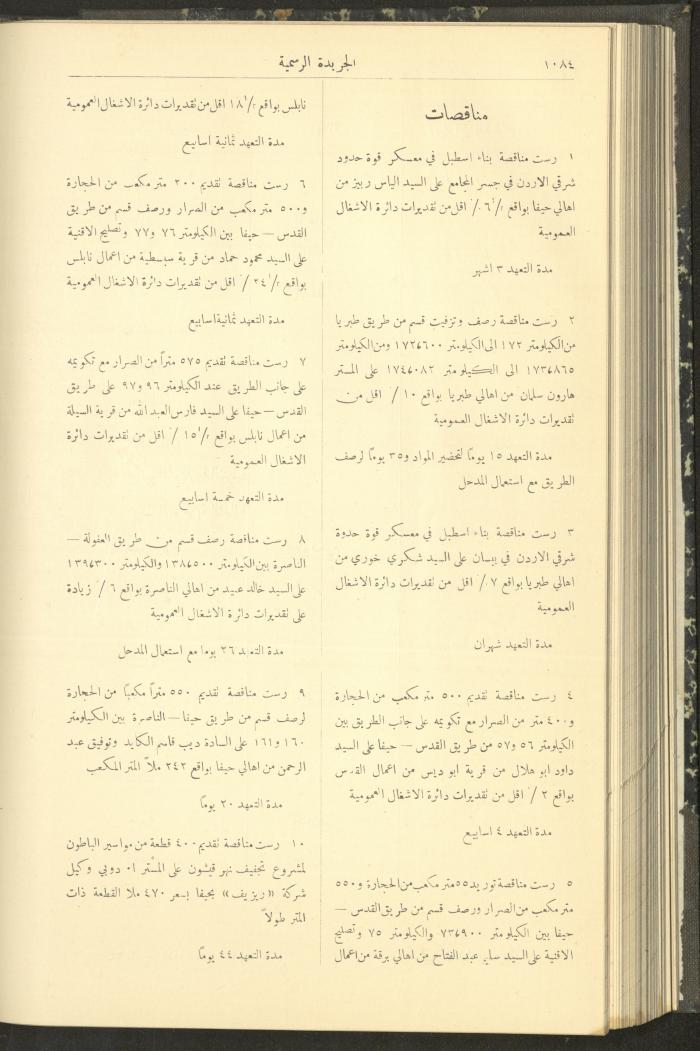 ١٠٨٤
الجريدة الرسمية
مناقصات
١ رست مناقصة بناء اسطبل في معسكر قوة حدود
شرقي الاردن في جسر المجامع على السيد الياس ربيز من
اهالي حيفا بواقع ٦ ./· اقل من تقديرات دائرة الاشغال
العمومية
مدة التعهد ٣ اشهر
٢ رست مناقصة رصف وتزفيت قسم من طريق طبريا
من الكيلومتر ١٧٢ الى الكيلومتر ١٧٢٫٦٠٠ ومن الكيلومتر
١٧٣٫٨٦٥ الى الكيلومتر ١٧٤٫٠٨٢ على المستر
هارون سلمان من اهالي طبريا بواقع ١٠ ./· اقل من
تقديرات دائرة الاشغال العمومية
مدة التعهد ١٥ يومًا لتحضير المواد و٣٥ يومًا لرصف
الطريق مع استعمال المدحل
٣ رست مناقصة بناء اسطبل في معسكر قوة حدوة
شرقي الاردن في بيسان على السيد شكري خوري من
اهالي طبريا بواقع ٧ ./· اقل من تقديرات دائرة الاشغال
العمومية
مدة التعهد شهران
٤ رست مناقصة تقديم ٥٠٠ متر مكعب من الحجارة
و٤٠٠ متر من الصرار مع تكويمه على جانب الطريق بين
الكيلومتر ٥٦ و٥٧ من طريق القدس — حيفا على السيد
داود ابو هلال من قرية ابو ديس من اعمال القدس
بواقع ٢ ./· اقل من تقديرات دائرة الاشغال العمومية
مدة التعهد ٤ اسابيع
٥ رست مناقصة توريد ٥٥ متر مكعب من الحجارة و٥٥٠
متر مكعب من الصرار ورصف قسم من طريق القدس —
حيفا بين الكيلومتر ٧٣٫٩٠٠ والكيلومتر ٧٥ وتصليح
الاقنية على السيد ساير عبد الفتاح من اهالي برقة من اعمال
نابلس بواقع ١٨ ./· اقل من تقديرات دائرة الاشغال العمومية
مدة التعهد ثمانية اسابيع
٦ رست مناقصة تقديم ٢٠٠ متر مكعب من الحجارة
و٥٠٠ متر مكعب من الصرار ورصف قسم من طريق
القدس — حيفا بين الكيلومتر ٧٦ و٧٧ وتصليح الاقنية
على السيد محمود حماد من قرية سبسطية من اعمال نابلس
بواقع ٢٤ ./· اقل من تقديرات دائرة الاشغال العمومية
مدة التعهد ثمانية اسابيع
٧ رست مناقصة تقديم ٥٧٥ مترًا من الصرار مع تكويمه
على جانب الطريق عند الكيلومتر ٩٦ و٩٧ على طريق
القدس — حيفا على السيد فارس العبد الله من قرية السيلة
من اعمال نابلس بواقع ١٥ ./· اقل من تقديرات دائرة
الاشغال العمومية
مدة التعهد خمسة اسابيع
٨ رست مناقصة رصف قسم من طريق العفولة —
الناصرة بين الكيلومتر ١٣٨٫٥٠٠ والكيلومتر ١٣٩٫٣٠٠
على السيد خالد عبيد من اهالي الناصرة بواقع ٦ ./· زيادة
على تقديرات دائرة الاشغال العمومية
مدة التعهد ٢٦ يوما مع استعمال المدحل
٩ رست مناقصة تقديم ٥٥٠ مترًا مكعبًا من الحجارة
لرصف قسم من طريق حيفا — الناصرة بين الكيلومتر
١٦٠ و١٦١ على السادة ديب قاسم الكايد وتوفيق عبد
الرحمن من اهالي حيفا بواقع ٢٤٢ ملاً المتر المكعب
مدة التعهد ٢٠ يومًا
١٠ رست مناقصة تقديم ٤٠٠ قطعة من مواسير الباطون
لمشروع تجفيف نهر قيشون على المستر ا٠ دوبي وكيل
شركة «ريزيف» بحيفا بسعر ٤٧٠ ملا القطعة ذات
المتر طولاً
مدة التعهد ٤٤ يومًا